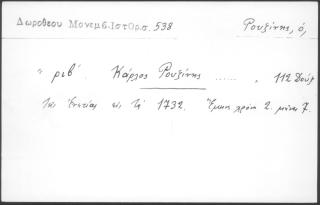 Δωροθεου Μονεμβ. Ιστορ. σ. 538
Ρουζίνης, ὁ,
" ριβ'. Κάρλος Ρουζίνης ...... , 112 Δούξ
τῆς Ἑνετίας εἰς τὰ 1732. Ἔμεινε χρόνους 2. μῆνας 7.